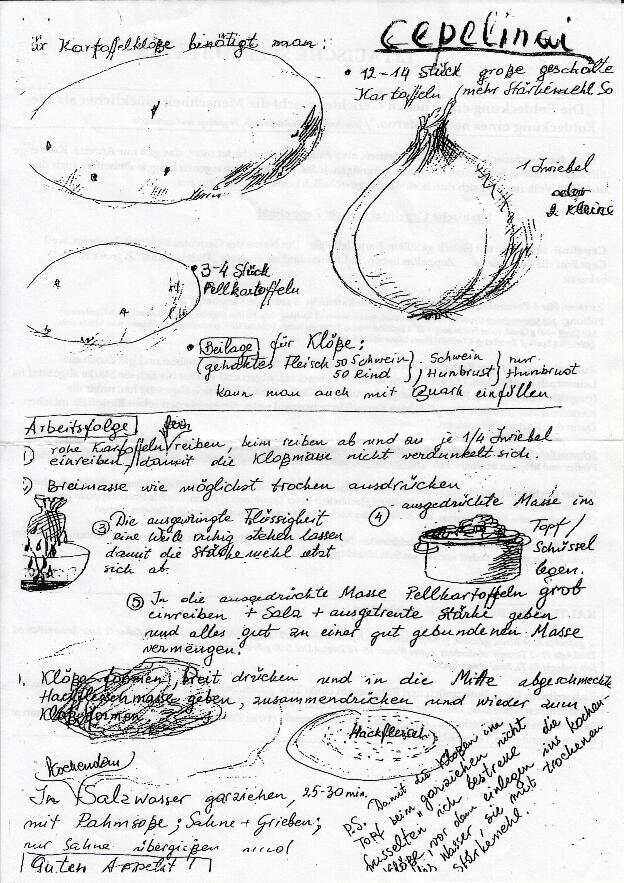 Cepelinai
ür Kartoffelklöße benötigt man:
• 12-14 Stück große geschälte
Kartoffeln (mehr Stärkemehl So
1 Zwiebel
oder
2 kleine
• 3-4 Stück
Pellkartoffeln
• Beilage für Klöße:
(gehaktes Fleisch 50 Schwein
50 Rind), Schwein
Hünbrust) nur
Hünbrust
kann man auch mit Quark einfüllen
Arbeitsfolge
1) rohe Kartoffeln fein reiben, beim reiben ab und zu je 1/4 Zwiebel
einreiben, damit die Kloßmasse nicht verdunkelt sich.
2) Breimasse wie möglichst trocken ausdrücken
③ Die ausgewringte Flüssigkeit
eine Weile ruhig stehen lassen
damit die Stärkemehl setzt
sich ab.
④ ausgedrückte Masse ins
Topf /
Schüssel
legen.
⑤ In die ausgedrückte Masse Pellkartoffeln grob
einreiben + Salz + ausgetrente Stärke geben
und alles gut zu einer gut gebundenen Masse
vermengen.
Klöße formen, breit drücken und in die Mitte abgeschmeckte
Hackfleischmasse geben, zusammendrücken und wieder zum
Kloß formen
Hackfleisch
Kochendem
Im Salzwasser garziehen, 25-30 min.
mit Rahmsoße; Sahne + Grieben;
nur Sahne übergießen und
Guten Appetit!
P.S. Damit die Klößen im
Topf beim garziehen nicht
ich bestreue die
Klöße vor dem einlegen ins kochen-
ins Wasser, sie mit trockenen
Stärkemehl.